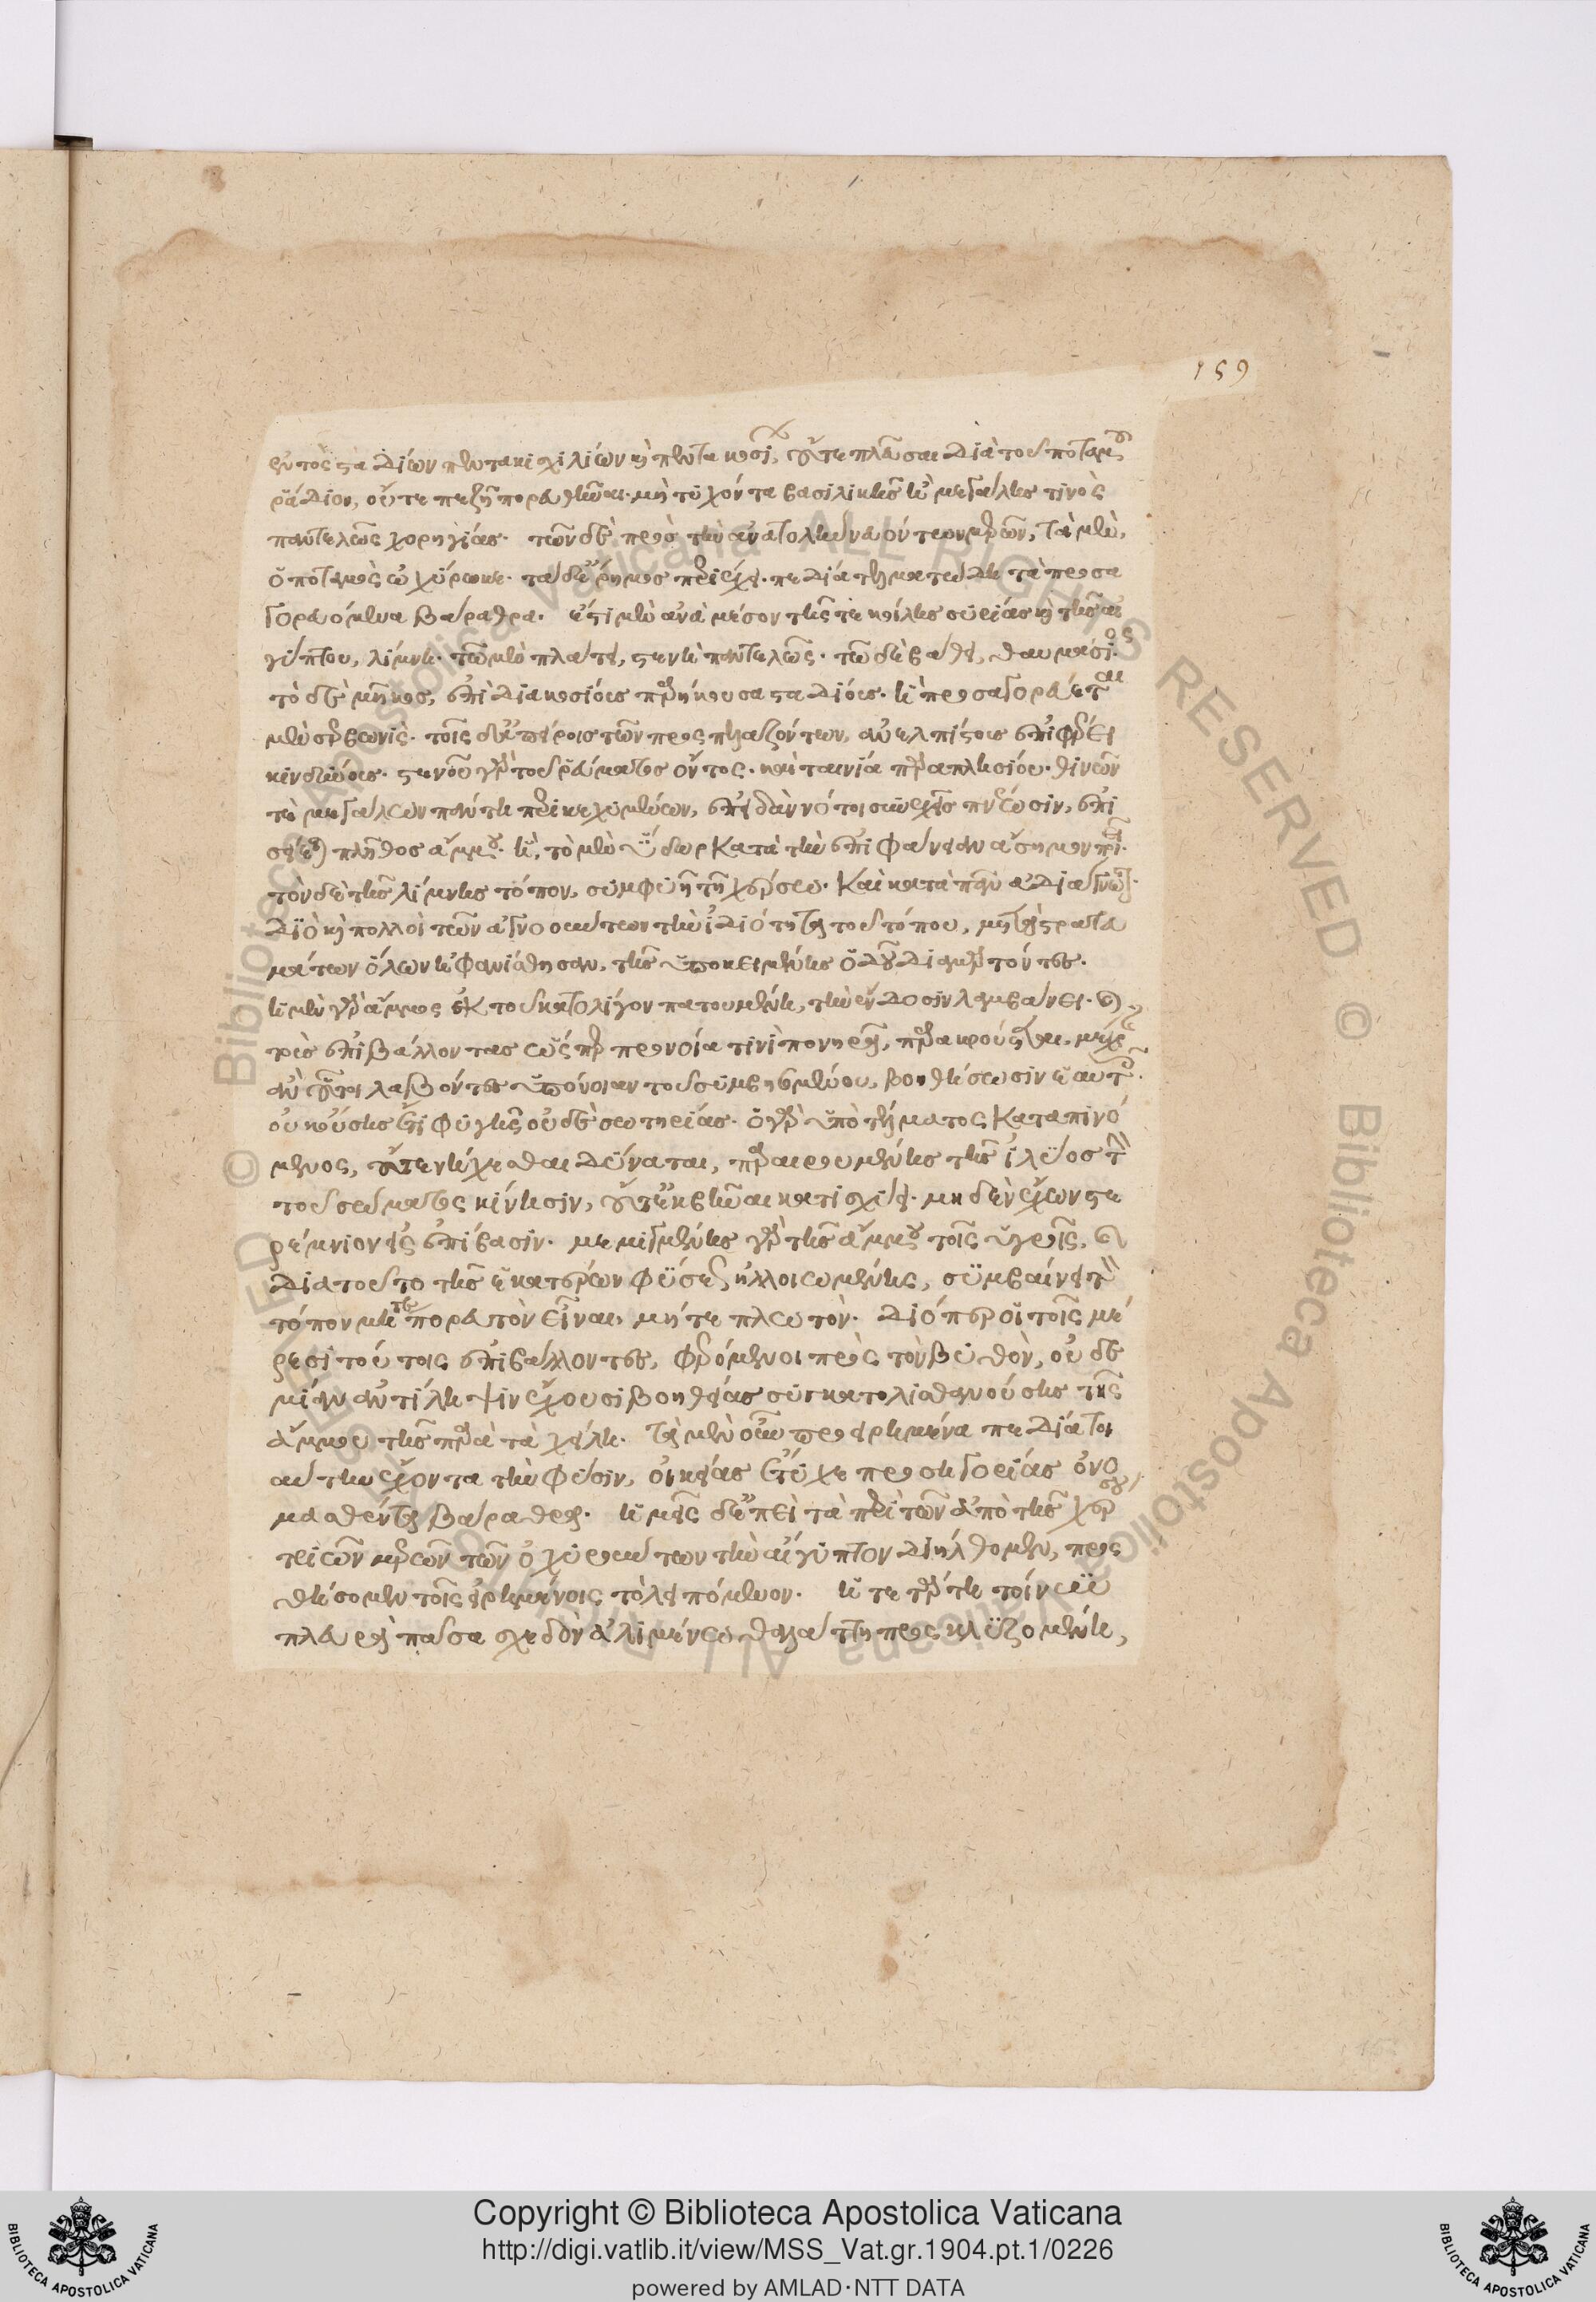 οντος σταδίων πεντακισχιλίων καὶ πεντακοσίων, οὔτε πλεῦσαι διὰ τοῦ ποταμοῦ
ῥάδιον, οὔτε πεζῇ πορευθῆναι. μὴ τυχόντα βασιλικῆς ἢ μεγάλης τινὸς
παντελῶς χορηγίας. τῶν δὲ πρὸς τὴν ἀνατολὴν νευόντων μερῶν, τὰ μὲν,
ὁ ποταμὸς ὠχύρωκε. τὰ δ' ἔρημος περιέχει. πεδία τελματώδη τὰ προσα
γορευόμενα βάραθρα. ἔστι μὲν ἀνὰ μέσον τῆς τε κοίλης συρίας καὶ τῆς αἰ
γύπτου, λίμνη. τῷ μὲν πλάτει, στενὴ παντελῶς. τῷ δὲ βάθει, θαυμάσιος.
τὸ δὲ μῆκος, ἐπὶ διακοσίους παρήκουσα σταδίους. ἣ προσαγορεύεται
μὲν σερβωνίς. τοῖς δ' ἀπείροις τῶν προσπελαζόντων, ἀνελπίστοις ἐπιφέρει
κινδύνοις. στενοῦ γὰρ τοῦ ῥεύματος ὄντος. καὶ ταινίᾳ παραπλησίου. θινῶν
τε μεγάλων πάντη περικεχυμένων, ἐπειδὰν νότοι συνεχεῖς πνεύσωσιν, ἐπι
σείεται πλῆθος ἄμμου. ἣ, τὸ μὲν ὕδωρ κατὰ τὴν ἐπιφάνειαν ἄσημον ποιεῖ.
τὸν δὲ τῆς λίμνης τόπον, συμφυῆ τῇ χέρσῳ. καὶ κατὰ πᾶν ἀδιάγνωστον.
διὸ καὶ πολλοὶ τῶν ἀγνοούντων τὴν ἰδιότητα τοῦ τόπου, μετὰ στρατευ
μάτων ὅλων ἠφανίσθησαν, τῆς ὑποκειμένης ὁδοῦ διαμαρτόντες.
ἡ μὲν γὰρ ἄμμος ἐκ τοῦ κατ' ὀλίγον πατουμένη, τὴν ἔνδοσιν λαμβάνει. καὶ
τοὺς ἐπιβάλλοντας ὥσπερ προνοίᾳ τινὶ πονηρᾷ, παρακρούεται, μέχρι
ἂν ὅτου λαβόντες ὑπόνοιαν τοῦ συμβησομένου, βοηθήσωσιν ἑαυτοῖς.
οὐκ οὔσης ἔτι φυγῆς οὐδὲ σωτηρίας. ὁ γὰρ ὑπὸ τέλματος καταπινό
μενος, οὔτε νήχεσθαι δύναται, παραιρουμένης τῆς ἰλύος τὴν
τοῦ σώματος κίνησιν, οὔτ' ἐκβῆναι κατισχύει. μηδὲν ἔχων στε
ρέμνιον εἰς ἐπίβασιν. μεμιγμένης γὰρ τῆς ἄμμου τοῖς ὑγροῖς, καὶ
διὰ τοῦτο τῆς ἑκατέρων φύσεως ἠλλοιωμένης, συμβαίνει τὸν
τόπον μήτε πορευτὸν εἶναι, μήτε πλωτόν. διόπερ οἱ τοῖς μέ
ρεσι τούτοις ἐπιβάλλοντες, φερόμενοι πρὸς τὸν βυθὸν, οὐδε
μίαν ἀντίληψιν ἔχουσι βοηθείας συγκατολισθανούσης τῆς
ἄμμου τῆς παρὰ τὰ χείλη. τὰ μὲν οὖν προειρημένα πεδία τοι
αύτην ἔχοντα τὴν φύσιν, οἰκείας ἔτυχε προσηγορίας ὀνο
μασθέντα βάραθρα. ἡμεῖς δ' ἐπεὶ τὰ περὶ τῶν ἀπὸ τῆς χέρσου
τριῶν μερῶν τῶν ὀχυρούντων τὴν αἴγυπτον διήλθομεν, προσ
θήσομεν τοῖς εἰρημένοις τὸ λειπόμενον. ἡ τετάρτη τοίνυν
πλευρὰ πᾶσα σχεδὸν ἀλιμένῳ θαλάττῃ προσκλυζομένη,
159
Copyright © Biblioteca Apostolica Vaticana
http://digi.vatlib.it/view/MSS_Vat.gr.1904.pt.1/0226
powered by AMLAD·NTT DATA